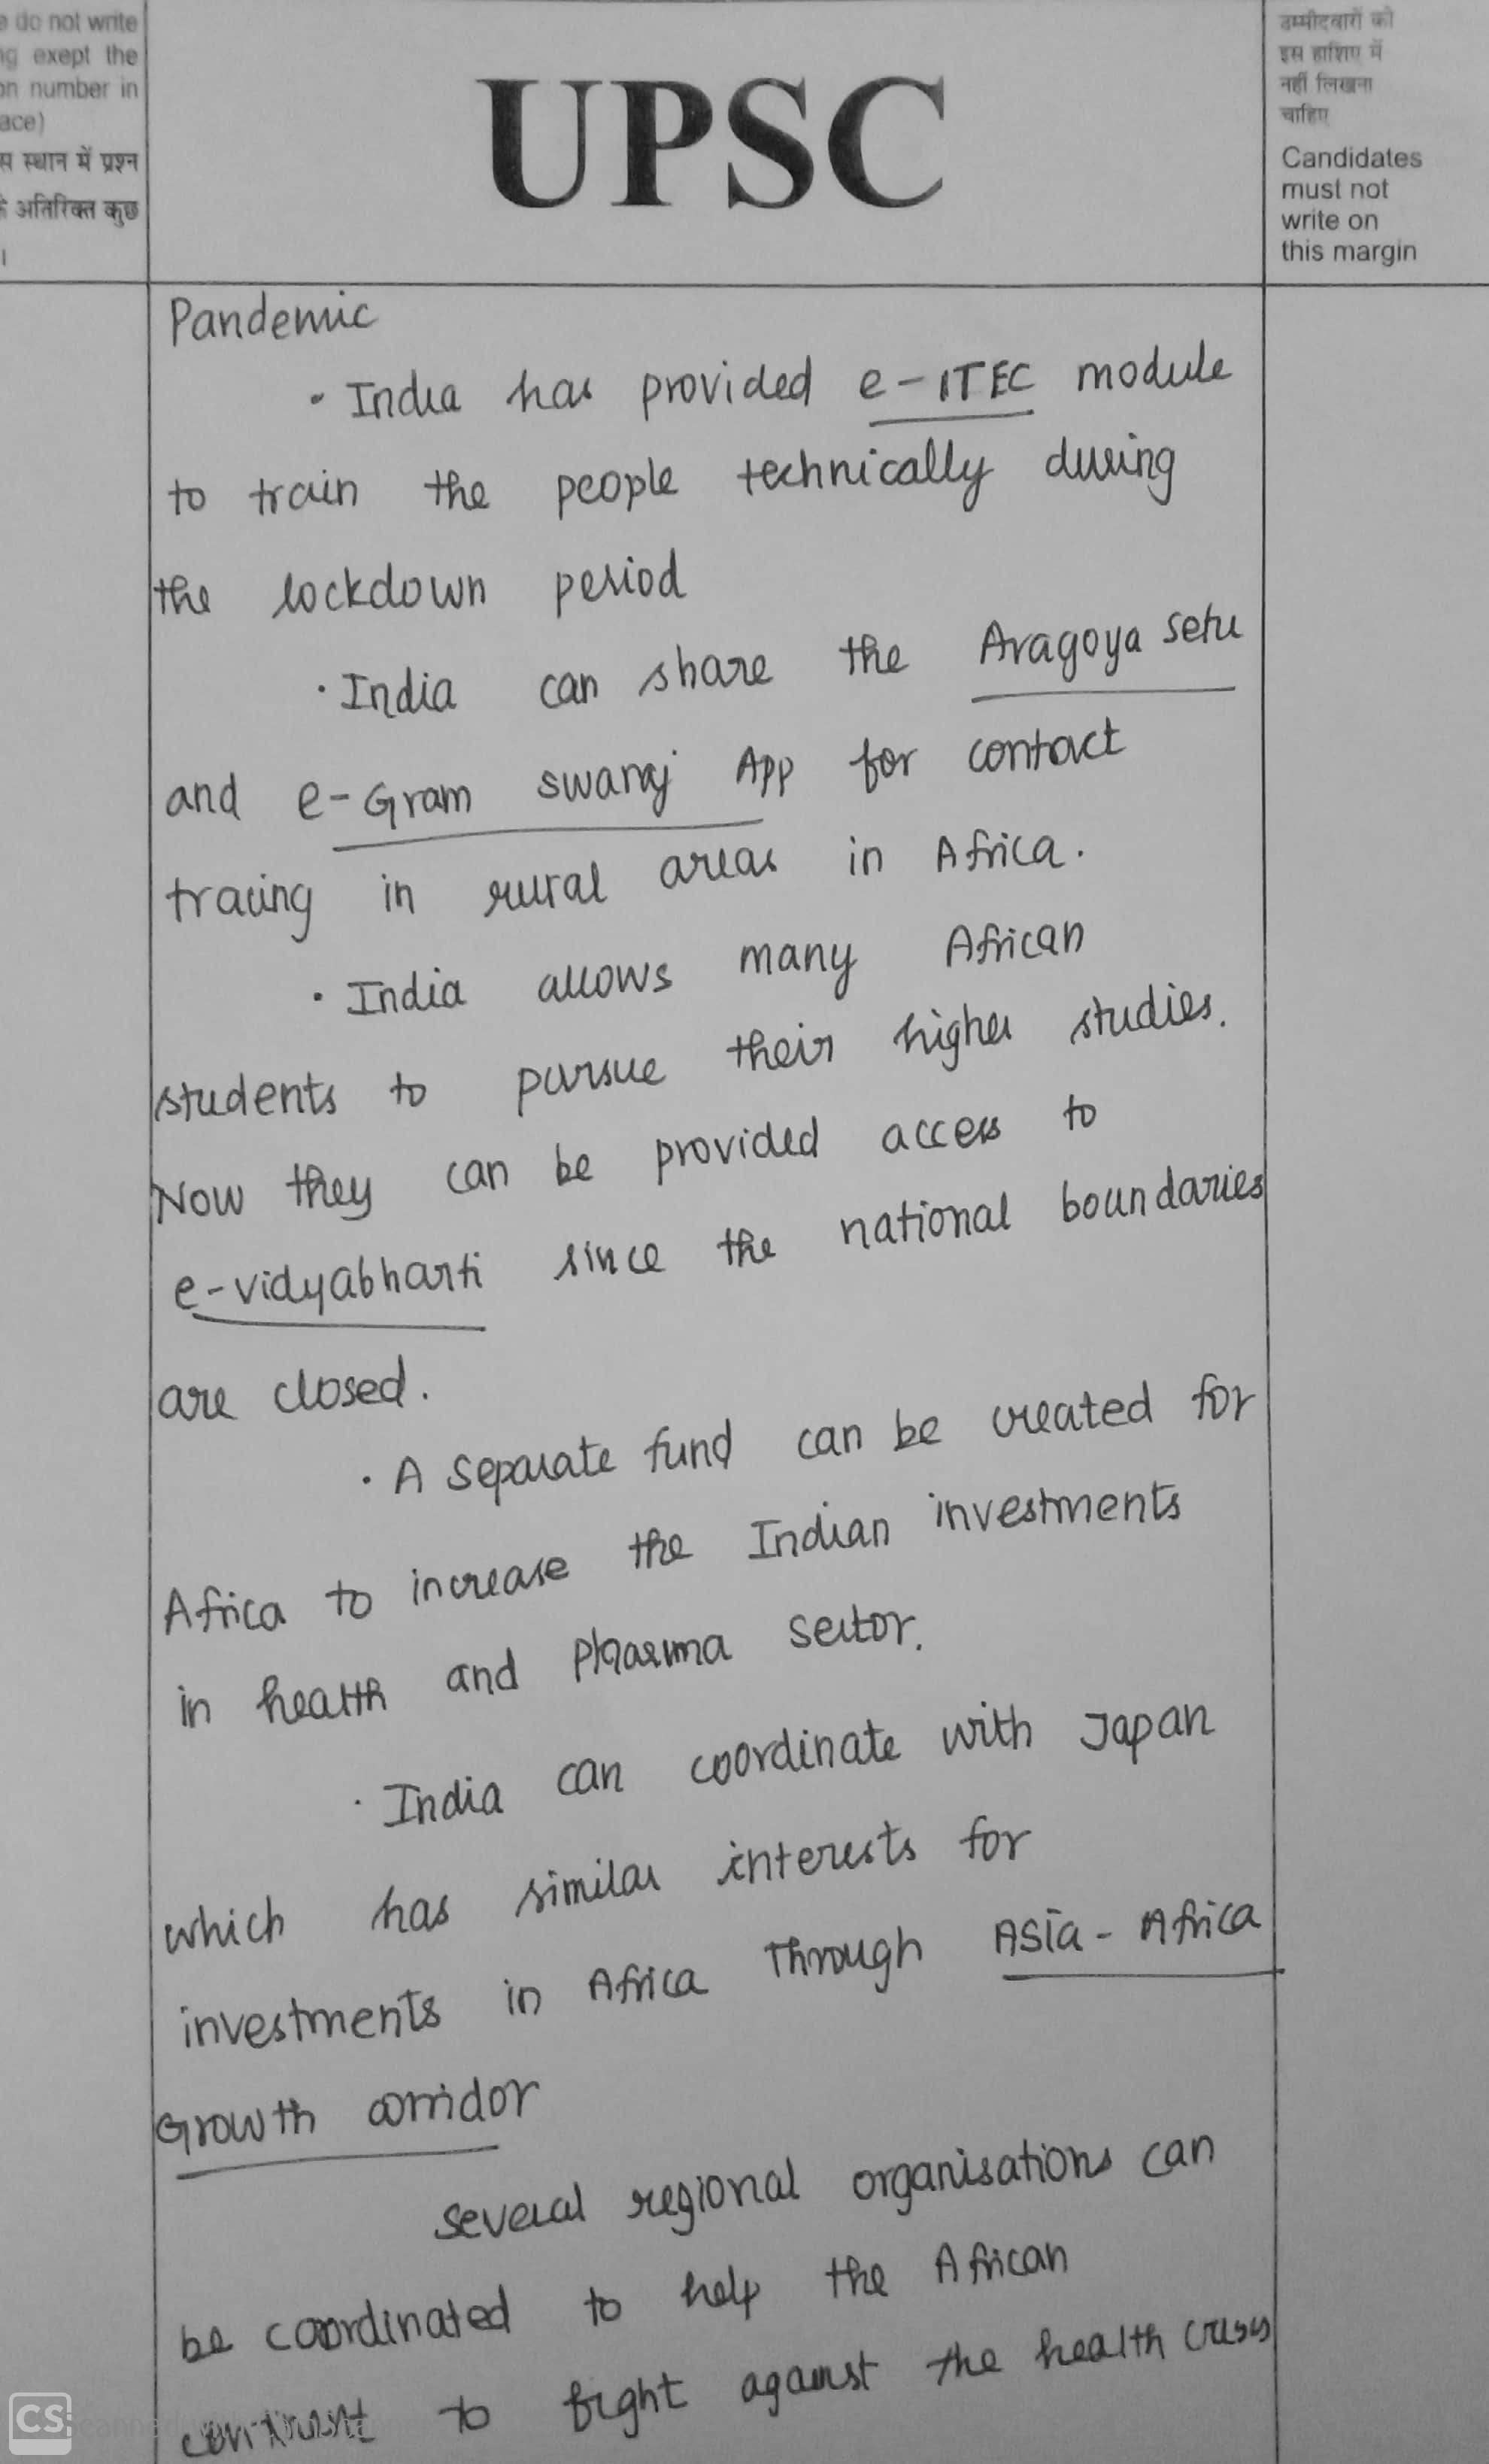 e do not write
ng exept the
on number in
ace)
स स्थान में प्रश्न
के अतिरिक्त कुछ
।
UPSC
उम्मीदवारों को
इस हाशिए में
नहीं लिखना
चाहिए
Candidates
must not
write on
this margin
Pandemic
· India has provided e-ITEC module
to train the people technically during
the lockdown period
· India can share the Aragoya setu
and e-Gram swaraj App for contact
tracing in rural areas in Africa.
· India allows many African
students to pursue their higher studies.
Now they can be provided access to
e-vidyabharti since the national boundaries
are closed.
· A separate fund can be created for
Africa to increase the Indian investments
in health and Pharma sector.
· India can coordinate with Japan
which has similar interests for
investments in Africa Through Asia-Africa
Growth corridor
several regional organisations can
be coordinated to help the African
continent to fight against the health crisis
CS